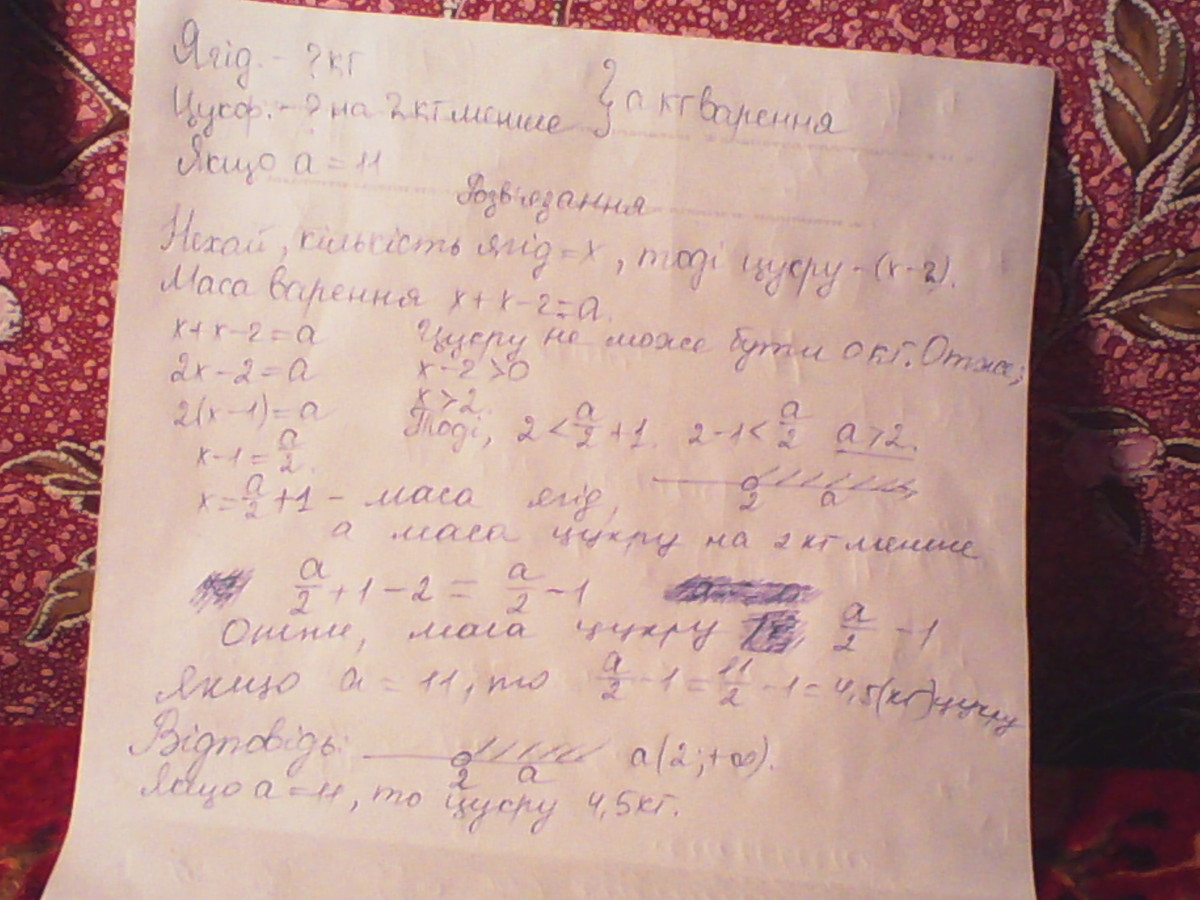 Ягід. - ? кг
Цукр. - ? на 2 кг менше } а кг варення
Якщо а = 11
Розв'язання
Нехай, кількість ягід = х, тоді цукру - (х-2).
Маса варення х + х - 2 = а.
х + х - 2 = а Цукру не може бути 0 кг. Отже;
2х - 2 = а х - 2 > 0
2(х-1) = а х > 2.
х - 1 = a/2. Тоді, 2 < a/2 + 1. 2 - 1 < a/2 a > 2.
х = a/2 + 1 - маса ягід, 2 a
а маса цукру на 2 кг менше
a/2 + 1 - 2 = a/2 - 1
Отже, маса цукру a/2 - 1
Якщо а = 11, то a/2 - 1 = 11/2 - 1 = 4,5 (кг) цукру
Відповідь: 2 a а(2; +∞).
Якщо а = 11, то цукру 4,5 кг.